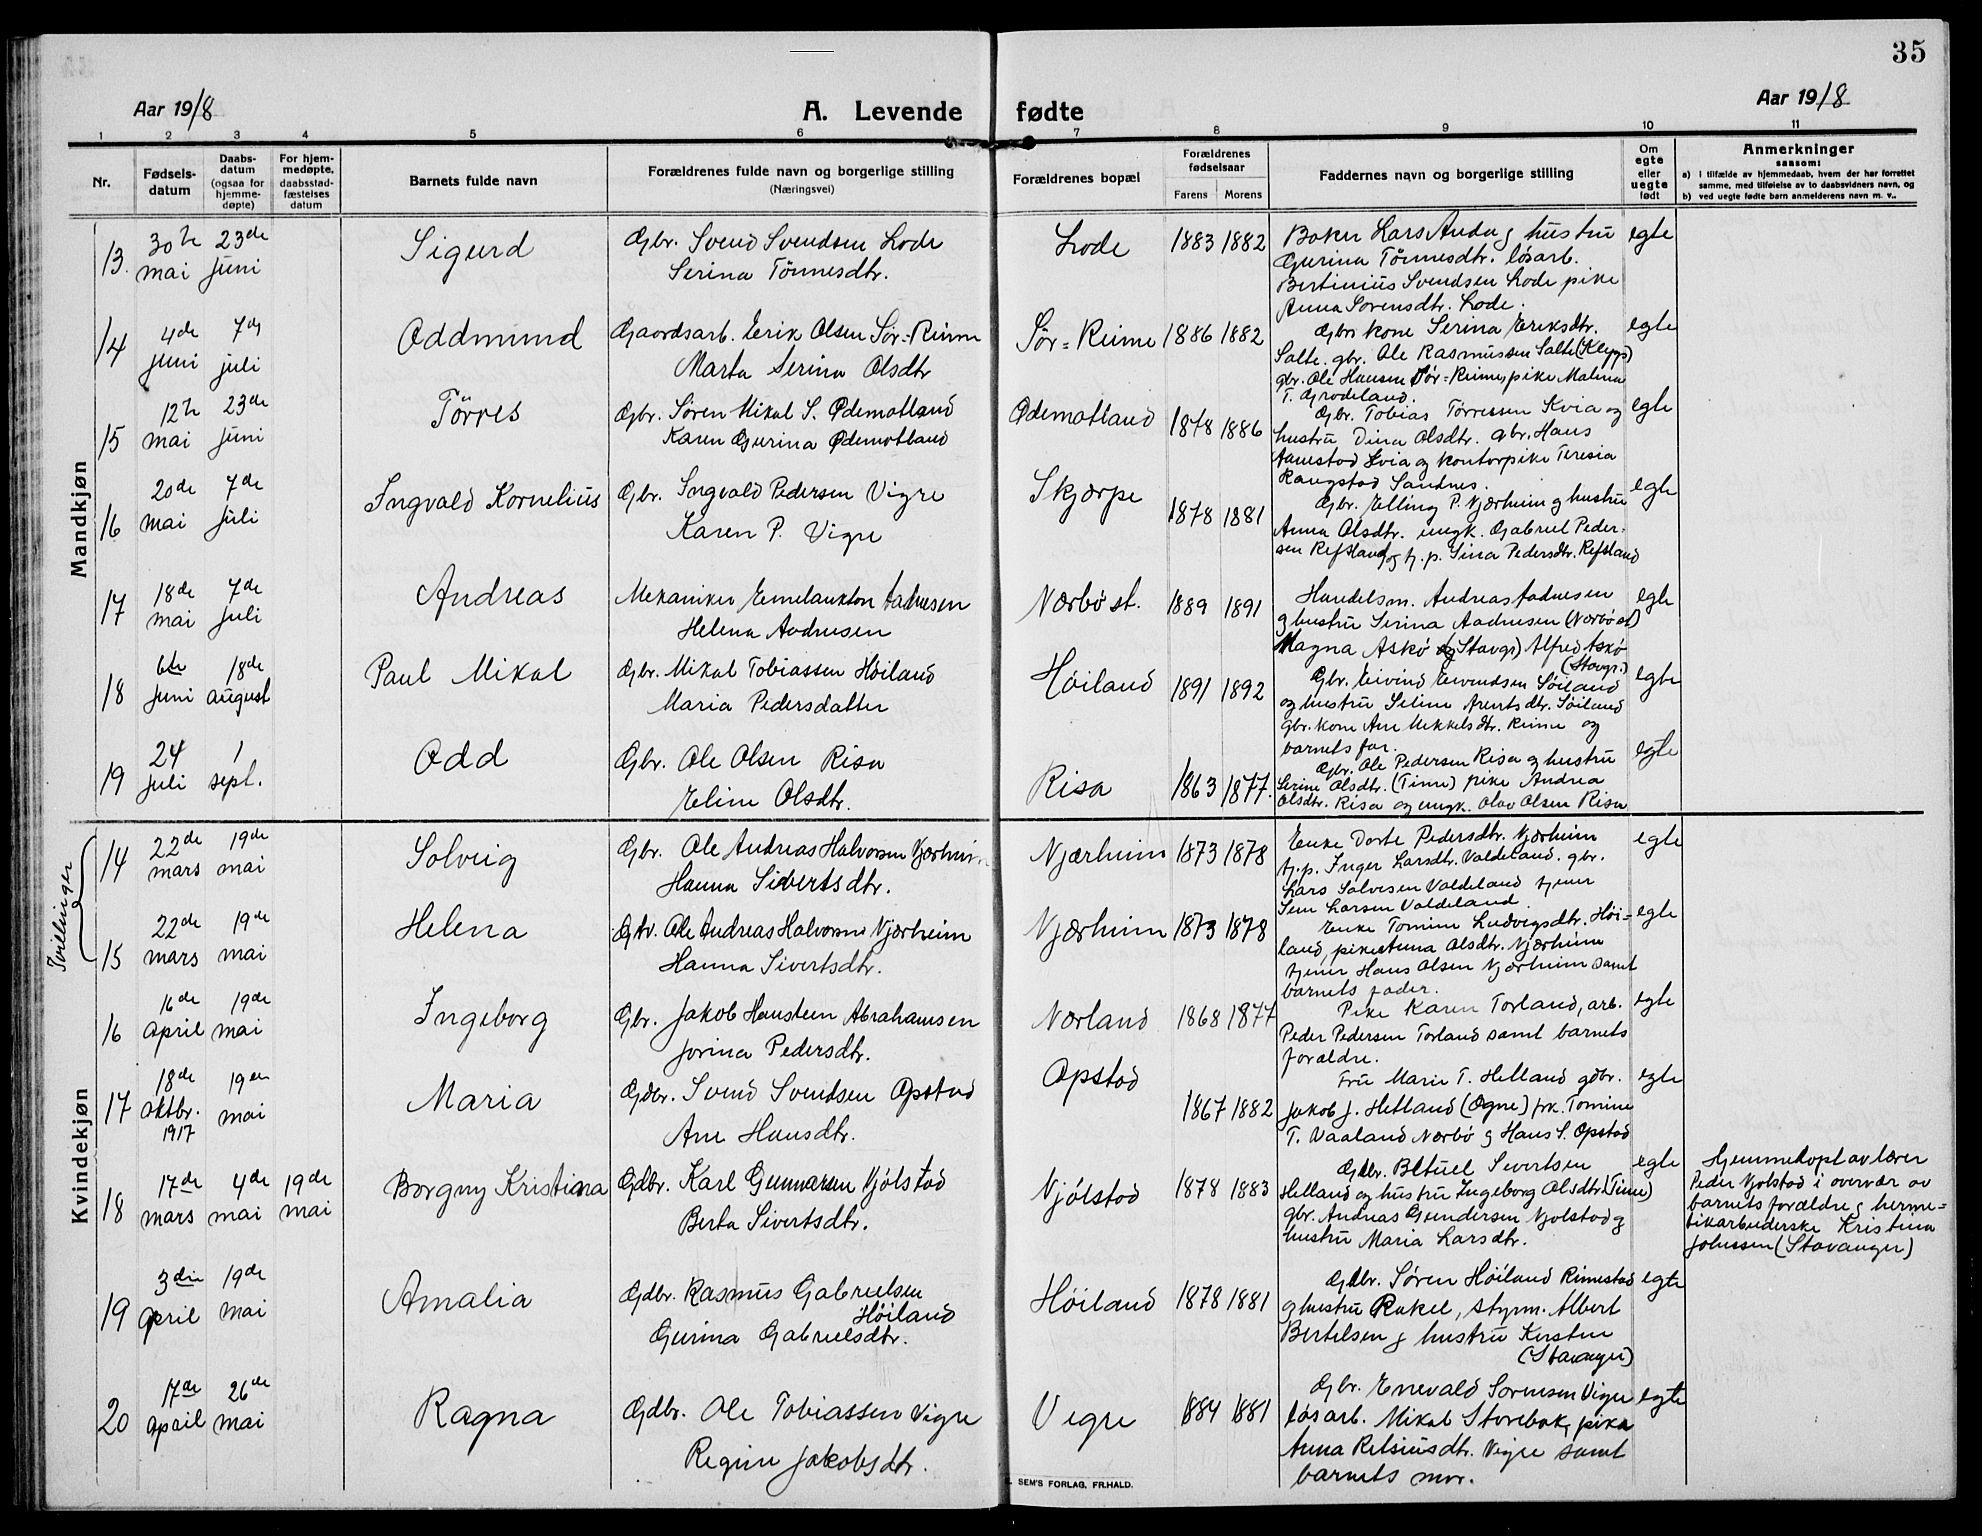 35
Aar 1918
A. Levende fødte
Aar 1918
1 2 3 4 5 6 7 8 9 10 11
Nr.
Fødsels-
datum
Daabs-
datum
(ogsaa for
hjemme-
døpte)
For hjem-
medøpte,
daabsstad-
fæstelses
datum
Barnets fulde navn
Forældrenes fulde navn og borgerlige stilling
(Næringsvei)
Forældrenes bopæl
Forældrenes
fødselsaar
Farens Morens
Faddernes navn og borgerlige stilling
Om
egte
eller
uegte
født
Anmerkninger
saasom:
a) I tilfælde av hjemmedaab, hvem der har forrettet
samme, med tilføielse av to daabsvidners navn, og
b) ved uegte fødte barn anmelderens navn m. v..
Mandkjøn
13. 30te mai 23de juni
Sigurd
Gbr. Svend Svendsen Lode
Serina Tönnesdtr.
Lode 1883 1882
Baker Lars Anda og hustru
Gurina Tönnesdtr. løsarb.
Bertinius Svendsen Lode pike
Anna Sorensdtr. Lode.
egte
14 4de juni 7de juli
Oddmund
Gaardsarb. Eerik Olsen Sör=Reime
Marta Serina Olsdtr
Sör=Reime 1886 1882
Gbrs kone Serina Eriksdtr.
Salte. gbr. Ole Rasmussen Salte (Klepp)
gbr. Ole Hansen Sör=Reime, pike Malena
T. Grødeland.
egte
15 12te mai 23de juni
Törres
Gbr. Sören Mikal S. Ødemotland
Karen Gurina Ødemotland
Ødemotland 1878 1886
Gbr. Tobias Törressen Kvia og
hustru Dina Olsdtr. gbr. Hans
Aanestad Kvia og kontorpike Teresia
Raugstad Sandnes.
egte
16 20de mai 7de juli
Ingvald Kornelius
Gbr. Ingvald Pedersen Vigre
Karen P. Vigre
Skjærpe 1878 1881
Gbr. Elling P. Njærheim og hustru
Anna Olsdtr. ungk. Gabriel Peder-
sen Refsland og tj. p. Sina Pedersdtr. Refsland
egte
17 18de mai 7de juli
Andreas
Mekaniker Emelankton Aadnesen
Helena Aadnesen
Nærbö st. 1889 1891
Handelsm. Andreas Aadnesen
og hustru Serina Aadnesen (Nærbö st)
Magna Askö (Stavgr) Alfred Askö
(Stavgr.)
egte
18 6te juni 18de august
Paul Mikal
Gbr. Mikal Tobiassen Höiland
Maria Pedersdatter
Höiland 1891 1892
Gbr. Eivind Eivendsen Söiland
og hustru Seline Arentsdtr. Söiland
gbr. kone Ane Mikkelsdtr. Reime og
barnets far.
egte
19 24 juli 1 sept.
Odd
Gbr. Ole Olsen Risa
Eline Olsdtr.
Risa 1863 1877.
Gbr. Ole Pedersen Risa og hustru
Serine Olsdtr. (Time) pike Andrea
Olsdtr. Risa og ungk. Olav Olsen Risa
egte
Kvindekjøn
Tvillinger
14 22de mars 19de mai
Solveig
Gbr. Ole Andreas Halvorsen Njærheim
Hanna Sivertsdtr.
Njærheim 1873 1878
Enke Dorte Pedersdtr. Njærheim
tj. p. Inger Larsdtr. Valdeland. gbr.
Lars Salvesen Valdeland tjener
Sem Larsen Valdeland.
egte
15 22de mars 19de mai
Helena
Gbr. Ole Andreas Halvorsen Njærheim
Hanna Sivertsdtr.
Njærheim 1873 1878
Enke Tomine Ludvigsdtr. Höi=
land, pike Anna Olsdtr. Njærheim
tjener Hans Olsen Njærheim samt
barnets fader.
egte
16 16de april 19de mai
Ingeborg
Gbr. Jakob Haustein Abrahamsen
Jorina Pedersdtr.
Nørland 1868 1877
Pike Karen Torland, arb.
Peder Pedersen Torland samt barnets
forældre.
egte
17 18de oktbr. 1917 19de mai
Maria
Gdbr. Svend Svendsen Opstad
Ane Hansdtr.
Opstad 1867 1882
Fru Marie T. Helland gdbr.
Jakob J. Helland (Ogne) frk. Tomine
T. Vaaland Nærbö og Hans S. Opstad
egte
18 17de mars 4de mai 19de mai
Borgny Kristiana
Gdbr. Karl Gunnarsen Njölstad
Berta Sivertsdtr.
Njölstad 1878 1883
Gdbr. Betuel Sivertsen
Helland og hustru Ingeborg Olsdtr. (Time)
gbr. Andreas Gundersen Njolstad og
hustru Maria Larsdtr.
egte
Hjemmedöpt av lærer
Peder Njolstad i overvær av
barnets forældre og herme=
tikarbeiderske Kristina
Johnssen (Stavanger)
19 3die april 19de mai
Amalia
Gdbr. Rasmus Gabrielsen
Höiland
Gurina Gabrielsdtr.
Höiland 1878 1881
Gdbr. Sören Höiland Rimestad
og hustru Rakel, styrm. Albert
Bertelsen og hustru Kersten
(Stavanger)
egte
20 17de april 26de mai
Ragna
Gdbr. Ole Tobiassen Vigre
Regine Jakobsdtr.
Vigre 1884 1881
Gbr. Enevald Sorensen Vigre
løsarb. Mikal Storebok, pike
Anna Retsiusdtr. Vigre samt
barnets mor.
egte
SEM'S FORLAG, FR.HALD.